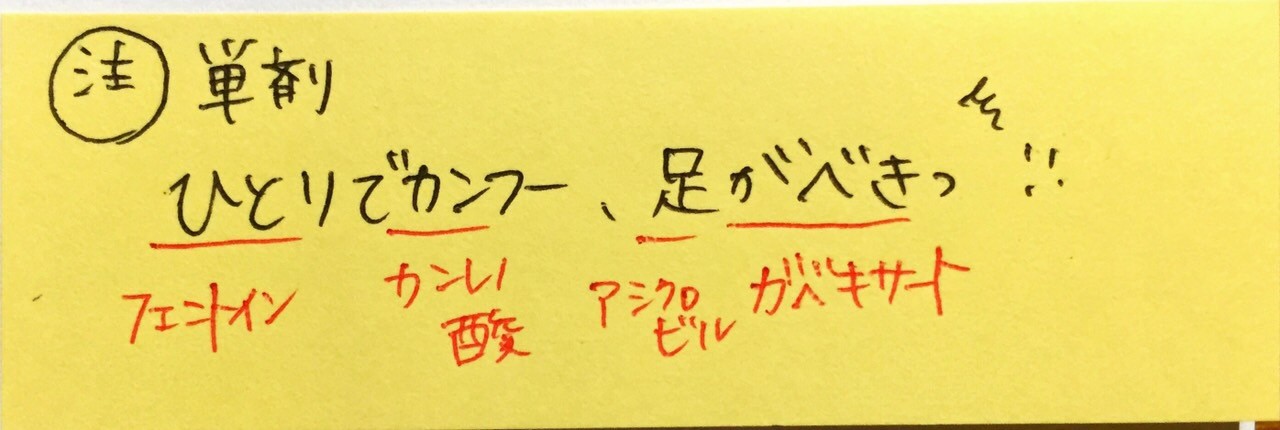 注 単剤
ひとりでカンフー、足がべきっ!!
フェニトイン カンレノ酸 アシクロビル ガベキサート